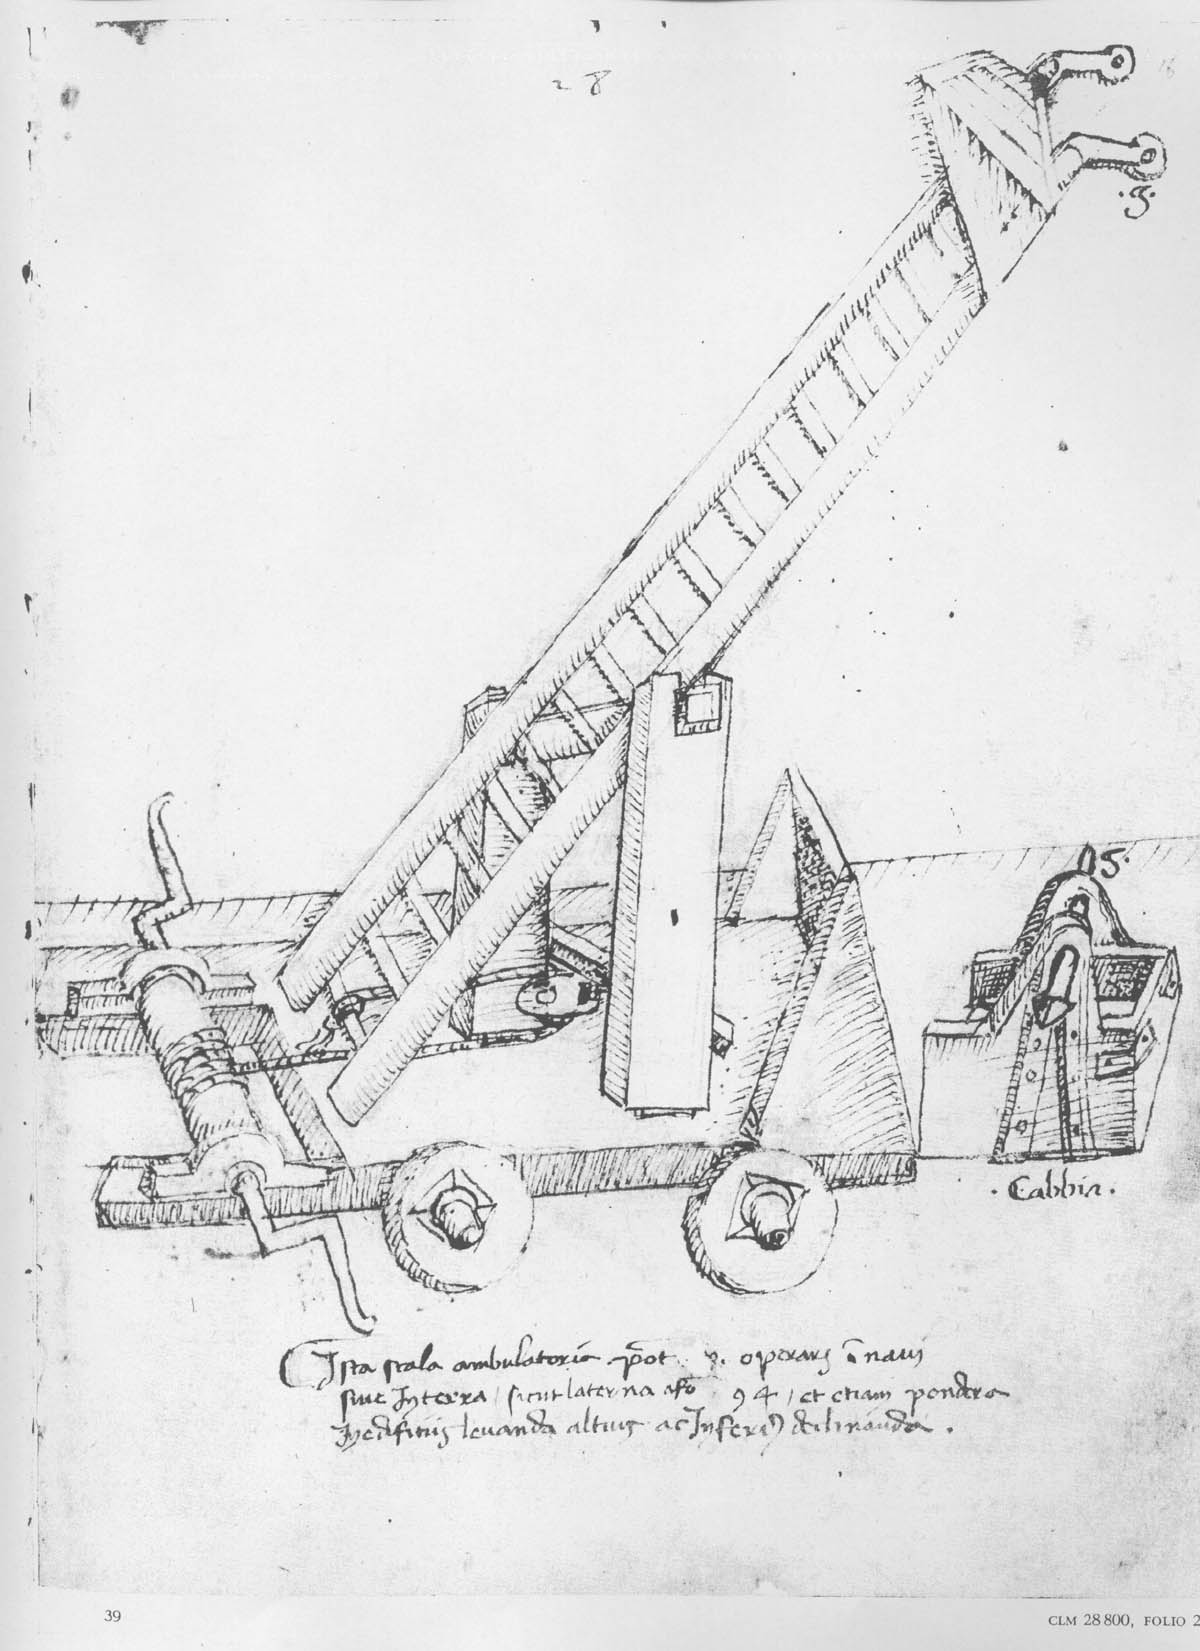 28
.g.
5.
. Cabbia .
Ista scala ambulatoria pōt operarj ī naui
siue In terra / sicut laterna afo 94 / et etiam pondera
In edifitijs leuanda altius ac Inferi9 declinanda .
39
CLM 28 800, FOLIO 2